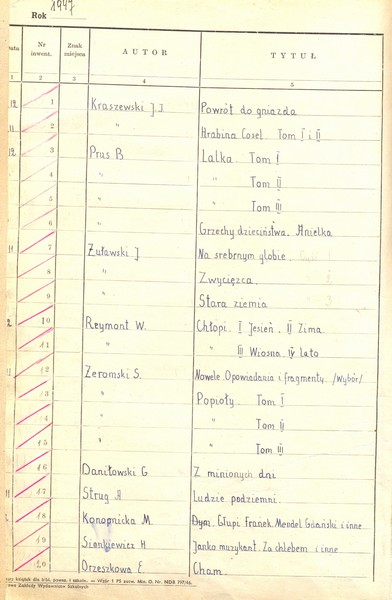 Rok 1947
Nr inwent. Znak miejsca AUTOR TYTUŁ
1 2 3 4 5
12 1 Kraszewski J I Powrót do gniazda
11 2 " Hrabina Cosel Tom I i II
12 3 Prus B Lalka Tom I
4 " " Tom II
5 " " Tom III
6 " Grzechy dzieciństwa. Anielka
11 7 Żuławski J Na srebrnym globie
8 " Zwycięzca.
9 " Stara ziemia
2 10 Reymont W. Chłopi. I Jesień. II Zima
11 " " III Wiosna IV Lato
11 12 Żeromski S. Nowele. Opowiadania i fragmenty. /wybór/
13 " Popioły Tom I
14 " " Tom II
15 " " Tom III
16 Daniłowski G Z minionych dni
11 17 Strug A Ludzie podziemni.
18 Konopnicka M. Dym. Głupi Franek. Mendel Gdański i inne
19 Sienkiewicz H Janko muzykant. Za chlebem i inne
20 Orzeszkowa E. Cham.
książek dla bibl. powsz. i szkoln. — Wzór 1 PS zatw. Min. O. Nr
Zakłady Wydawnictw Szkolnych